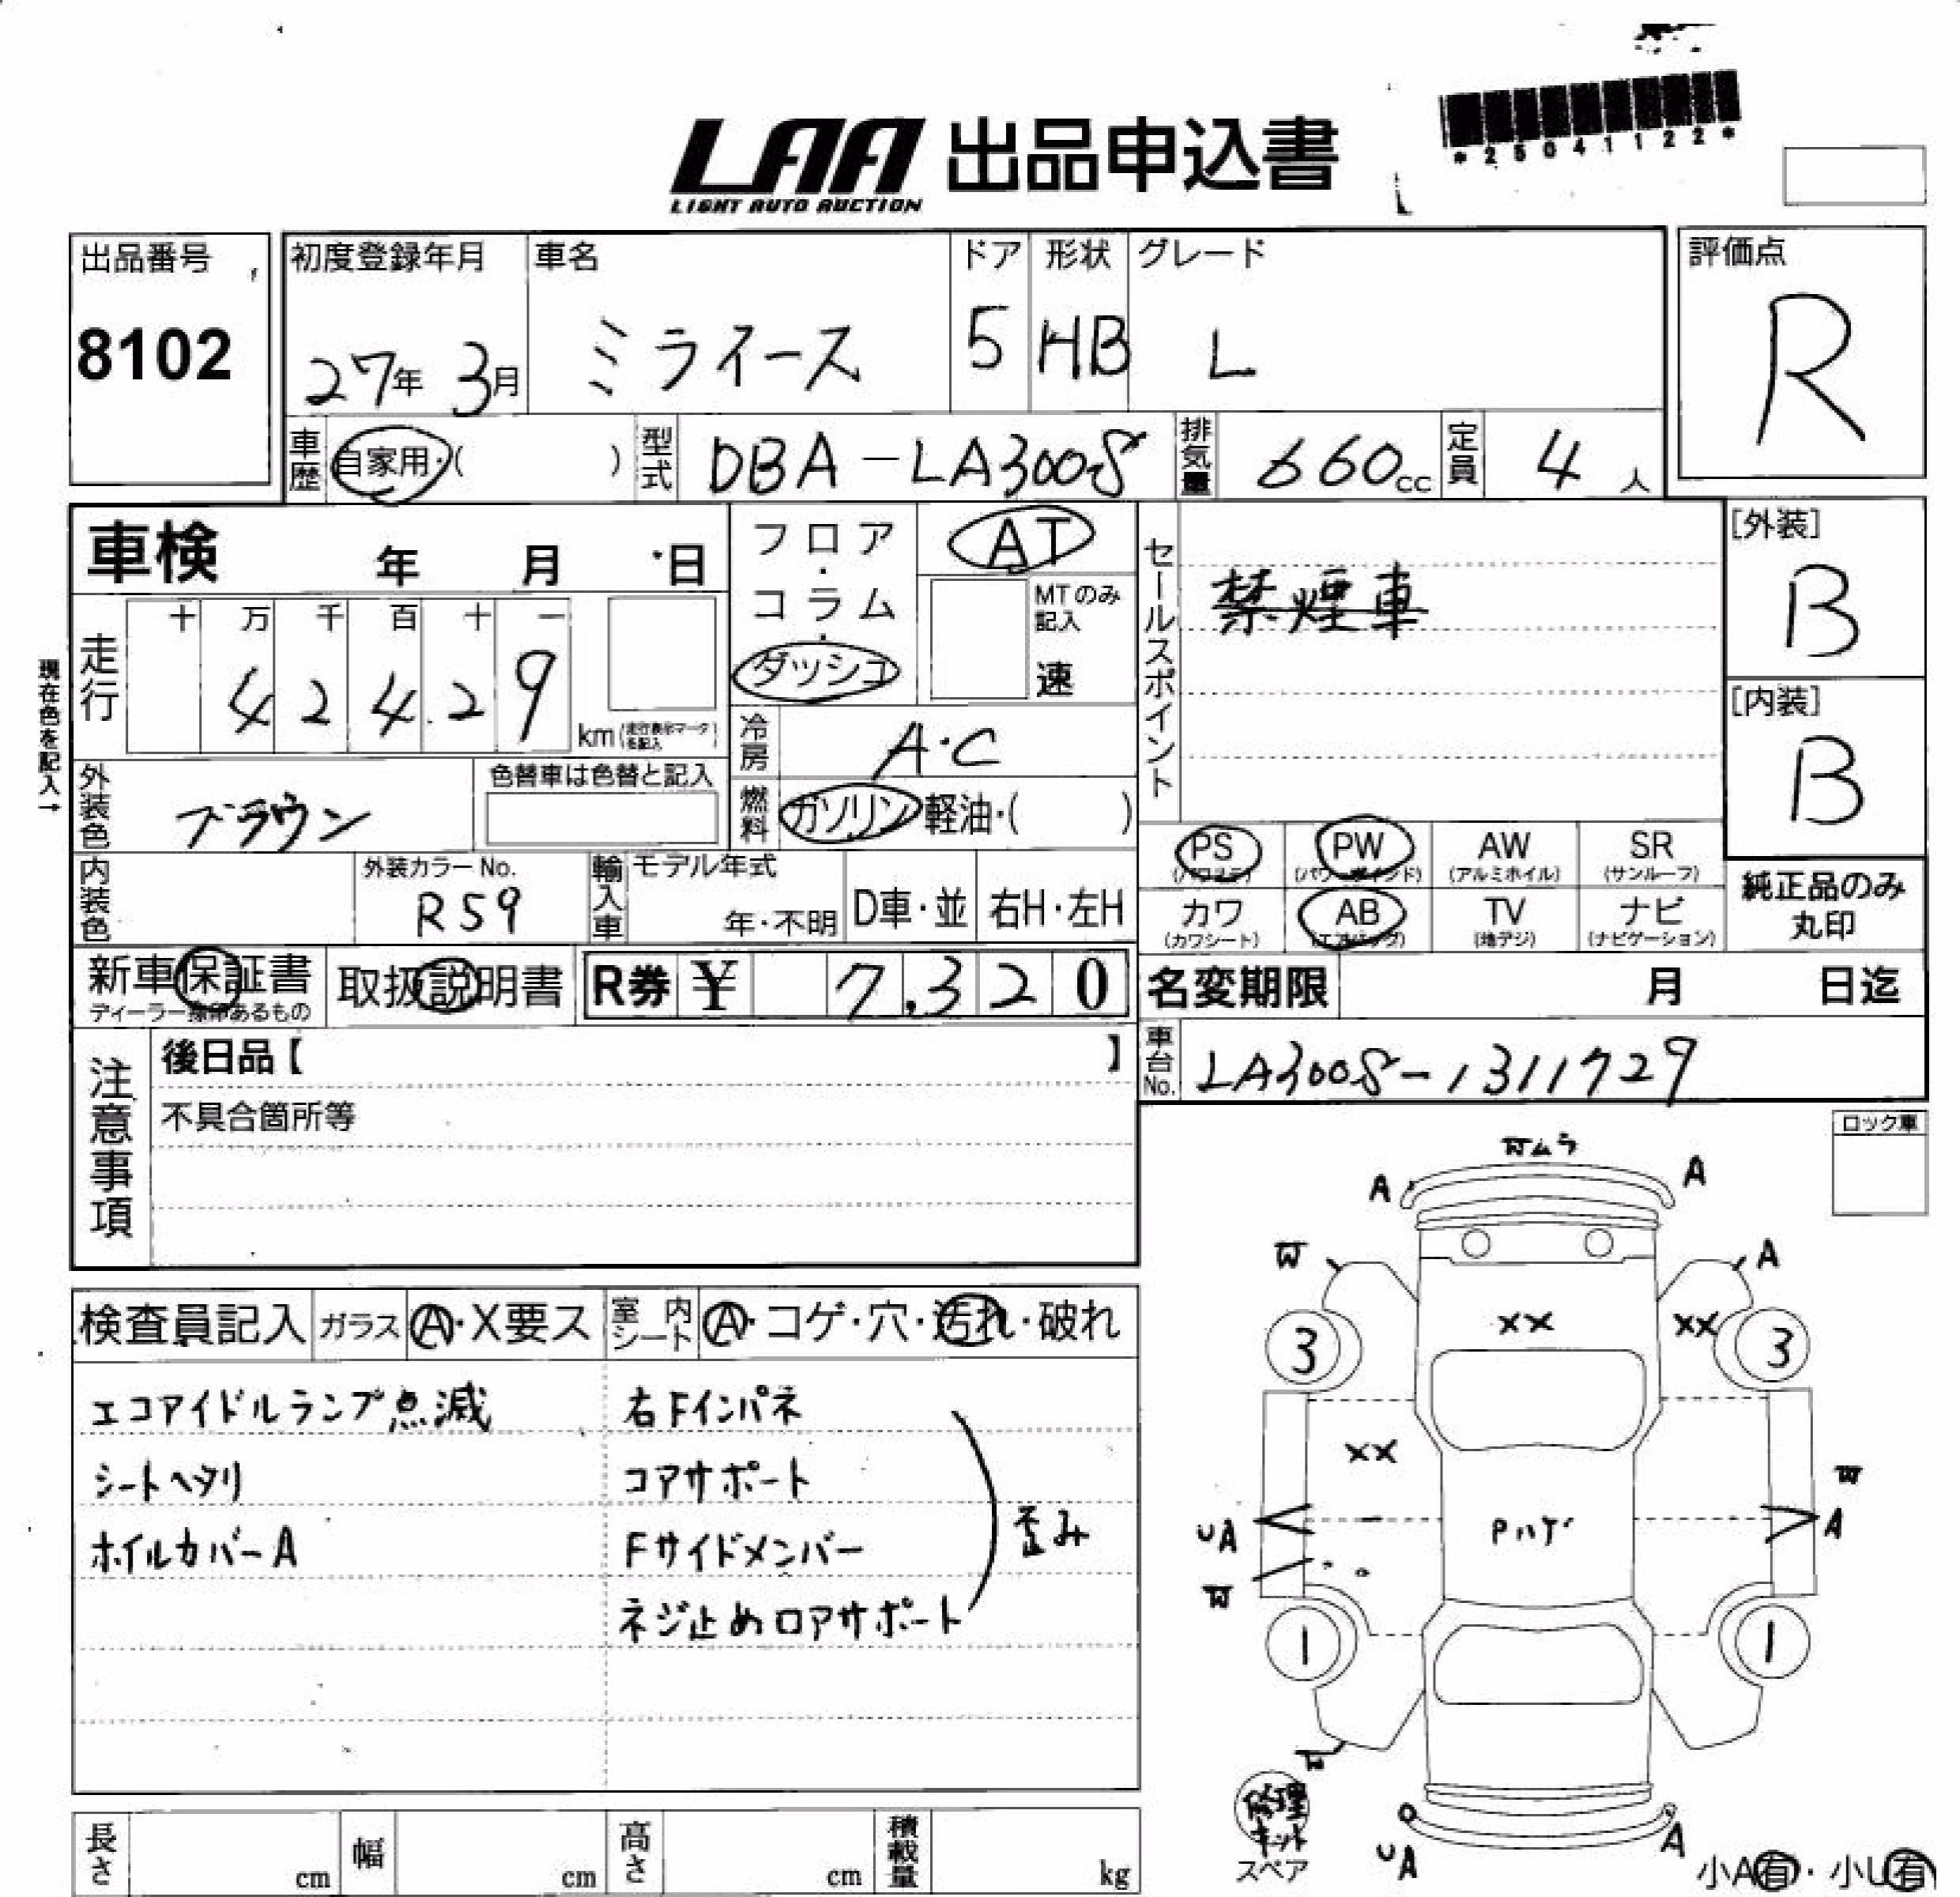 *25041122*
LAA 出品申込書
LIGHT AUTO AUCTION
出品番号
8102
初度登録年月
27年 3月
車名
ミライース
ドア
5
形状
HB
グレード
L
評価点
R
車歴
自家用・( )
型式
DBA-LA300S
排気量
660cc
定員
4人
車検 年 月 日
現在色を記入→
走行
十 万 千 百 十 一
4 2 4 2 9
km
フロア・コラム・ダッシュ
AT
MTのみ記入
速
セールスポイント
禁煙車
[外装]
B
[内装]
B
冷房
A・C
外装色
ブラウン
色替車は色替と記入
燃料
ガソリン 軽油・( )
内装色
外装カラーNo.
R59
輸入車
モデル年式
年・不明
D車・並
右H・左H
PS PW AW SR
(アルミホイル) (サンルーフ)
カワ AB TV ナビ
(カワシート) (エアバッグ) (地デジ) (ナビゲーション)
純正品のみ
丸印
新車保証書
取扱説明書
R券 ¥ 7,320
名変期限 月 日迄
車台No.
LA300S-1311729
注意事項
後日品【 】
不具合箇所等
ロック車
検査員記入
ガラス
A・X要ス
室内シート
A・コゲ・穴・汚れ・破れ
エコアイドルランプ点滅
シートヘタリ
ホイルカバーA
右Fインパネ
コアサポート
Fサイドメンバー
ネジ止めロアサポート
歪み
Wムラ
A A
W A
XX XX
3 3
XX
W
UA Pハゲ A
W
1 1
W
修理キット
スペア
UA A
小A有・小U有
長さ cm
幅 cm
高さ cm
積載量 kg